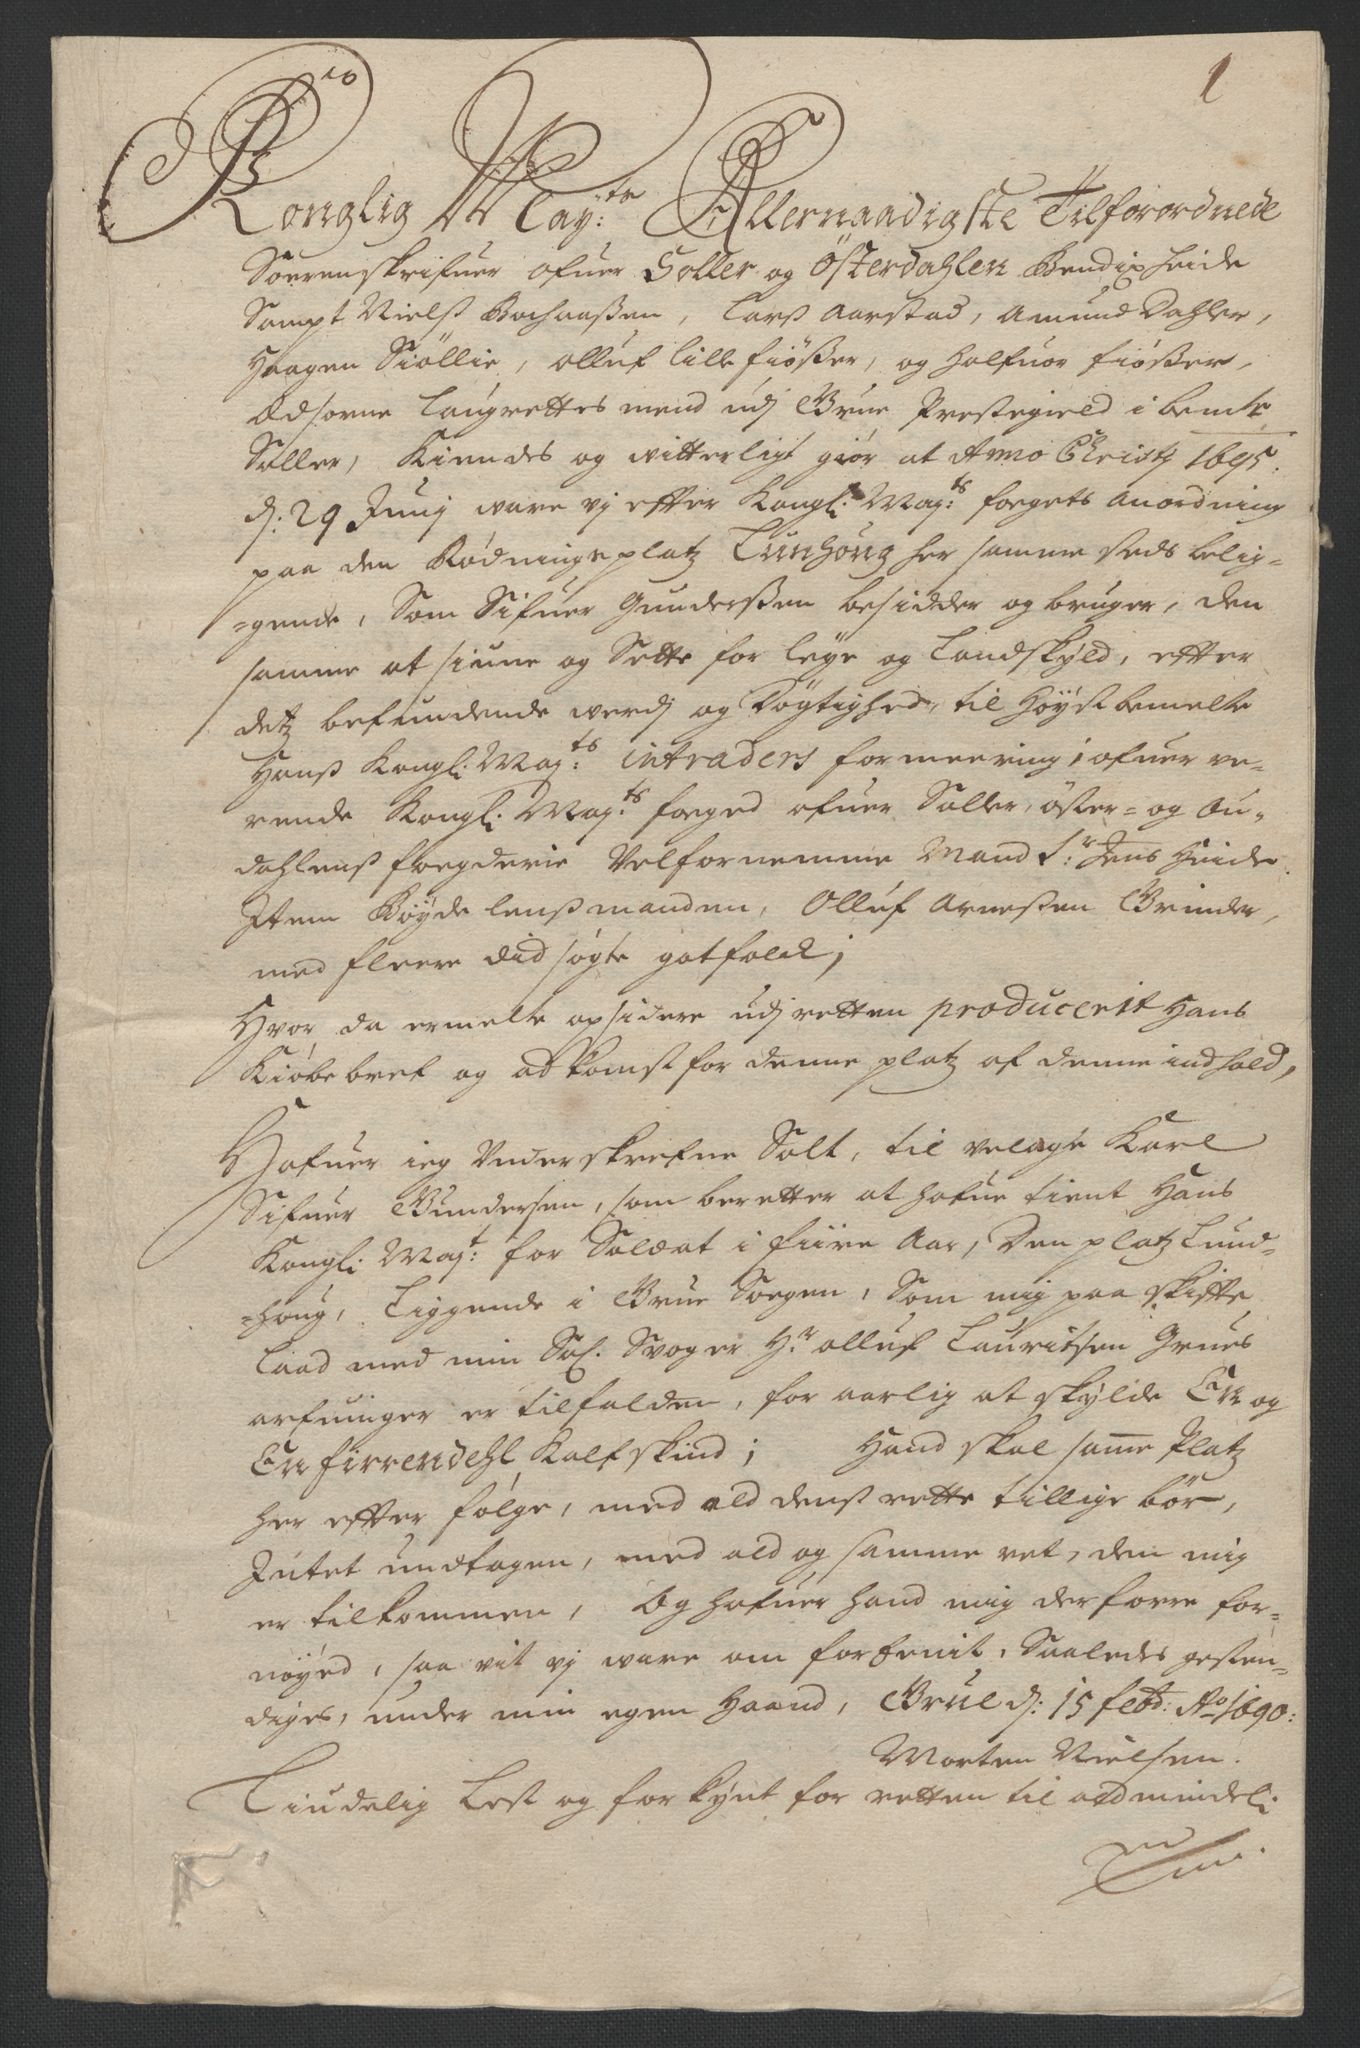 1
Konglig May:ts Allernaadigste Tilforordnede
Sorenskrifuer ofuer Soller og Østerdahlen Bendix Heide
Sampt Nielß Bachaaßen, Larß Aarstad, Amund Dahler,
Haagen Siöllie, olluf lille fiößer, og Halfuor fiößer,
Edsorne Laugrettes mend udj Grue Prestegield i bemte
Soller, Kiendes og witterligt giör at Anno Christj 1695.
d: 29 Junj ware vj efter Kongl: May:ts fogets anordning
paa den Rödningsplatz Lunhoug her samme steds belig-
-gende, Som Sifuer Gunderßen besidder og bruger, den
samme at siune og Sette for leye og Landskyld, efter
detz befindende werdj og Dögtighed, til Höystbemelte
Hanß Kongl: May:ts intraders formeering; ofuer ve-
rende Kongl: May:ts foged ofuer Soller, öster- og Ou-
dahlenß fogderie Velfornemme Mand Sr: Jens Heide
Item Böyde lenßmanden, Olluf Arneßen Grinder,
med fleere did sögte gotfolck;
Hvor da ermelte opsidere udj retten producerit Hans
Kiöbebref og adkomst for denne platz af denne indhold,
Hafuer ieg Underskrefne Solt, til velagte Karl
Sifuer Gundersen, som beretter at hafue tient Hans
Kongl: May:t for Soldat i fiire Aar, Den platz Lund-
-houg, Liggende i Grue Sogen, Som mig paa skifte
Laad med min Sal. Svoger Hr olluf Lauritsen Grues
arfuinger er tilfalden, for aarlig at skylde En og
En firrendehl Kalfskind; Hand skal samme Platz
her efter fölge, med ald denß rette tillige bör,
Intet undtagen, med ald og samme ret, den mig
er tilkommen, Og hafuer hand mig derforre for-
nöyed, saa vit vj ware om forEenit, Saaledes gesten-
diges, under min egen Haand, Grue d: 15 febr: Ao 1690:
Morten Nielsen.
Tiudelig Lest og forkynt for retten til aldmindeli